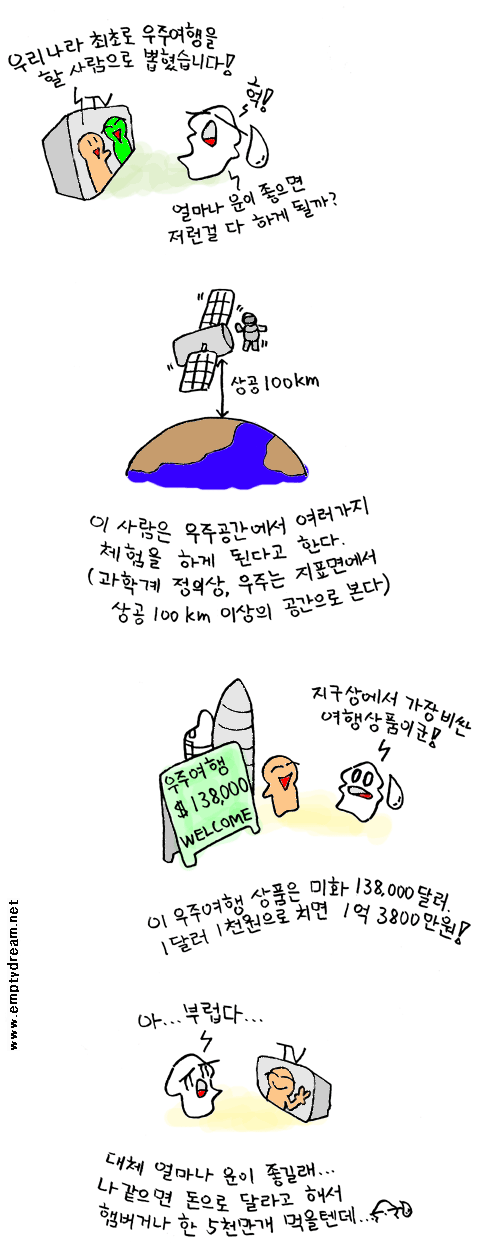 우리나라 최초로 우주여행을
할 사람으로 뽑혔습니다!
TV
헉!
얼마나 운이 좋으면
저런걸 다 하게 될까?
상공 100km
이 사람은 우주공간에서 여러가지
체험을 하게 된다고 한다.
(과학계 정의상, 우주는 지표면에서
상공 100km 이상의 공간으로 본다)
지구상에서 가장 비싼
여행상품이군!
우주여행
$ 138,000
WELCOME
이 우주여행 상품은 미화 138,000달러.
1달러 1천원으로 치면 1억 3800만원!
www.emptydream.net
아...부럽다...
TV
대체 얼마나 운이 좋길래...
나같으면 돈으로 달라고 해서
햄버거나 한 5천만개 먹을텐데...